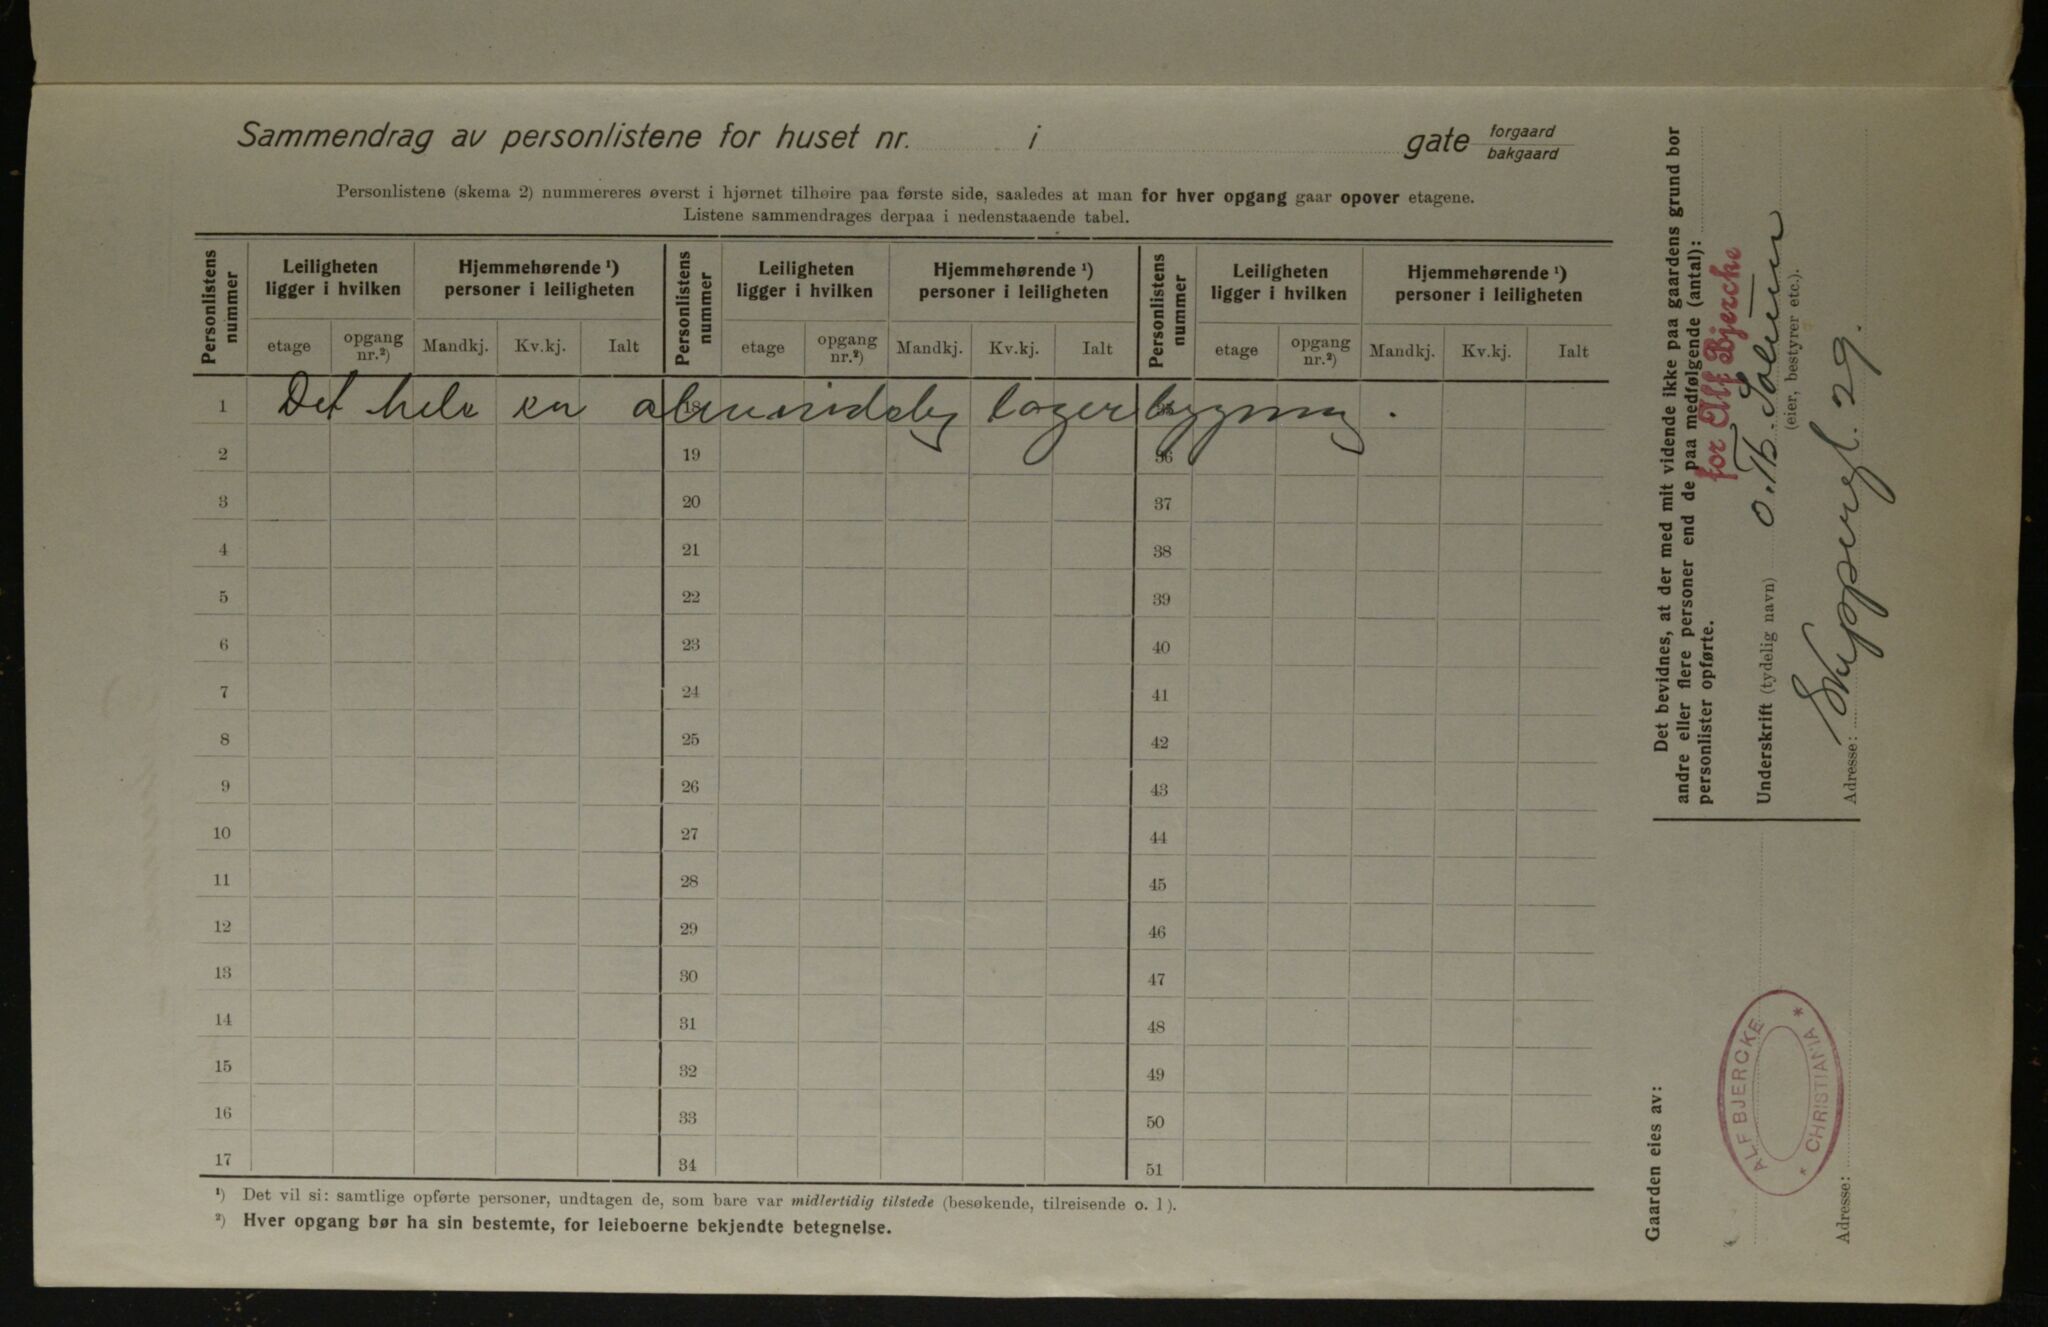 Sammendrag av personlistene for huset nr. i gate forgaard
bakgaard
Personlistene (skema 2) nummereres øverst i hjørnet tilhøire paa første side, saaledes at man for hver opgang gaar opover etagene.
Listene sammendrages derpaa i nedenstaaende tabel.
Personlistens nummer
Leiligheten ligger i hvilken
Hjemmehørende ¹) personer i leiligheten
Personlistens nummer
Leiligheten ligger i hvilken
Hjemmehørende ¹) personer i leiligheten
Personlistens nummer
Leiligheten ligger i hvilken
Hjemmehørende ¹) personer i leiligheten
etage opgang nr.²) Mandkj. Kv.kj. Ialt etage opgang nr.²) Mandkj. Kv.kj. Ialt etage opgang nr.²) Mandkj. Kv.kj. Ialt
1 Det hele en lagerbygning.
2 19 36
3 20 37
4 21 38
5 22 39
6 23 40
7 24 41
8 25 42
9 26 43
10 27 44
11 28 45
12 29 46
13 30 47
14 31 48
15 32 49
16 33 50
17 34 51
¹) Det vil si: samtlige opførte personer, undtagen de, som bare var midlertidig tilstede (besøkende, tilreisende o. l).
²) Hver opgang bør ha sin bestemte, for leieboerne bekjendte betegnelse.
Det bevidnes, at der med mit vidende ikke paa gaardens grund bor
andre eller flere personer end de paa medfølgende (antal):
personlister opførte.
for Alf Bjercke
Underskrift (tydelig navn) O. Th.
(eier, bestyrer etc.).
Adresse: Skippergt. 29.
Gaarden eies av:
ALF BJERCKE
* CHRISTIANIA *
Adresse: